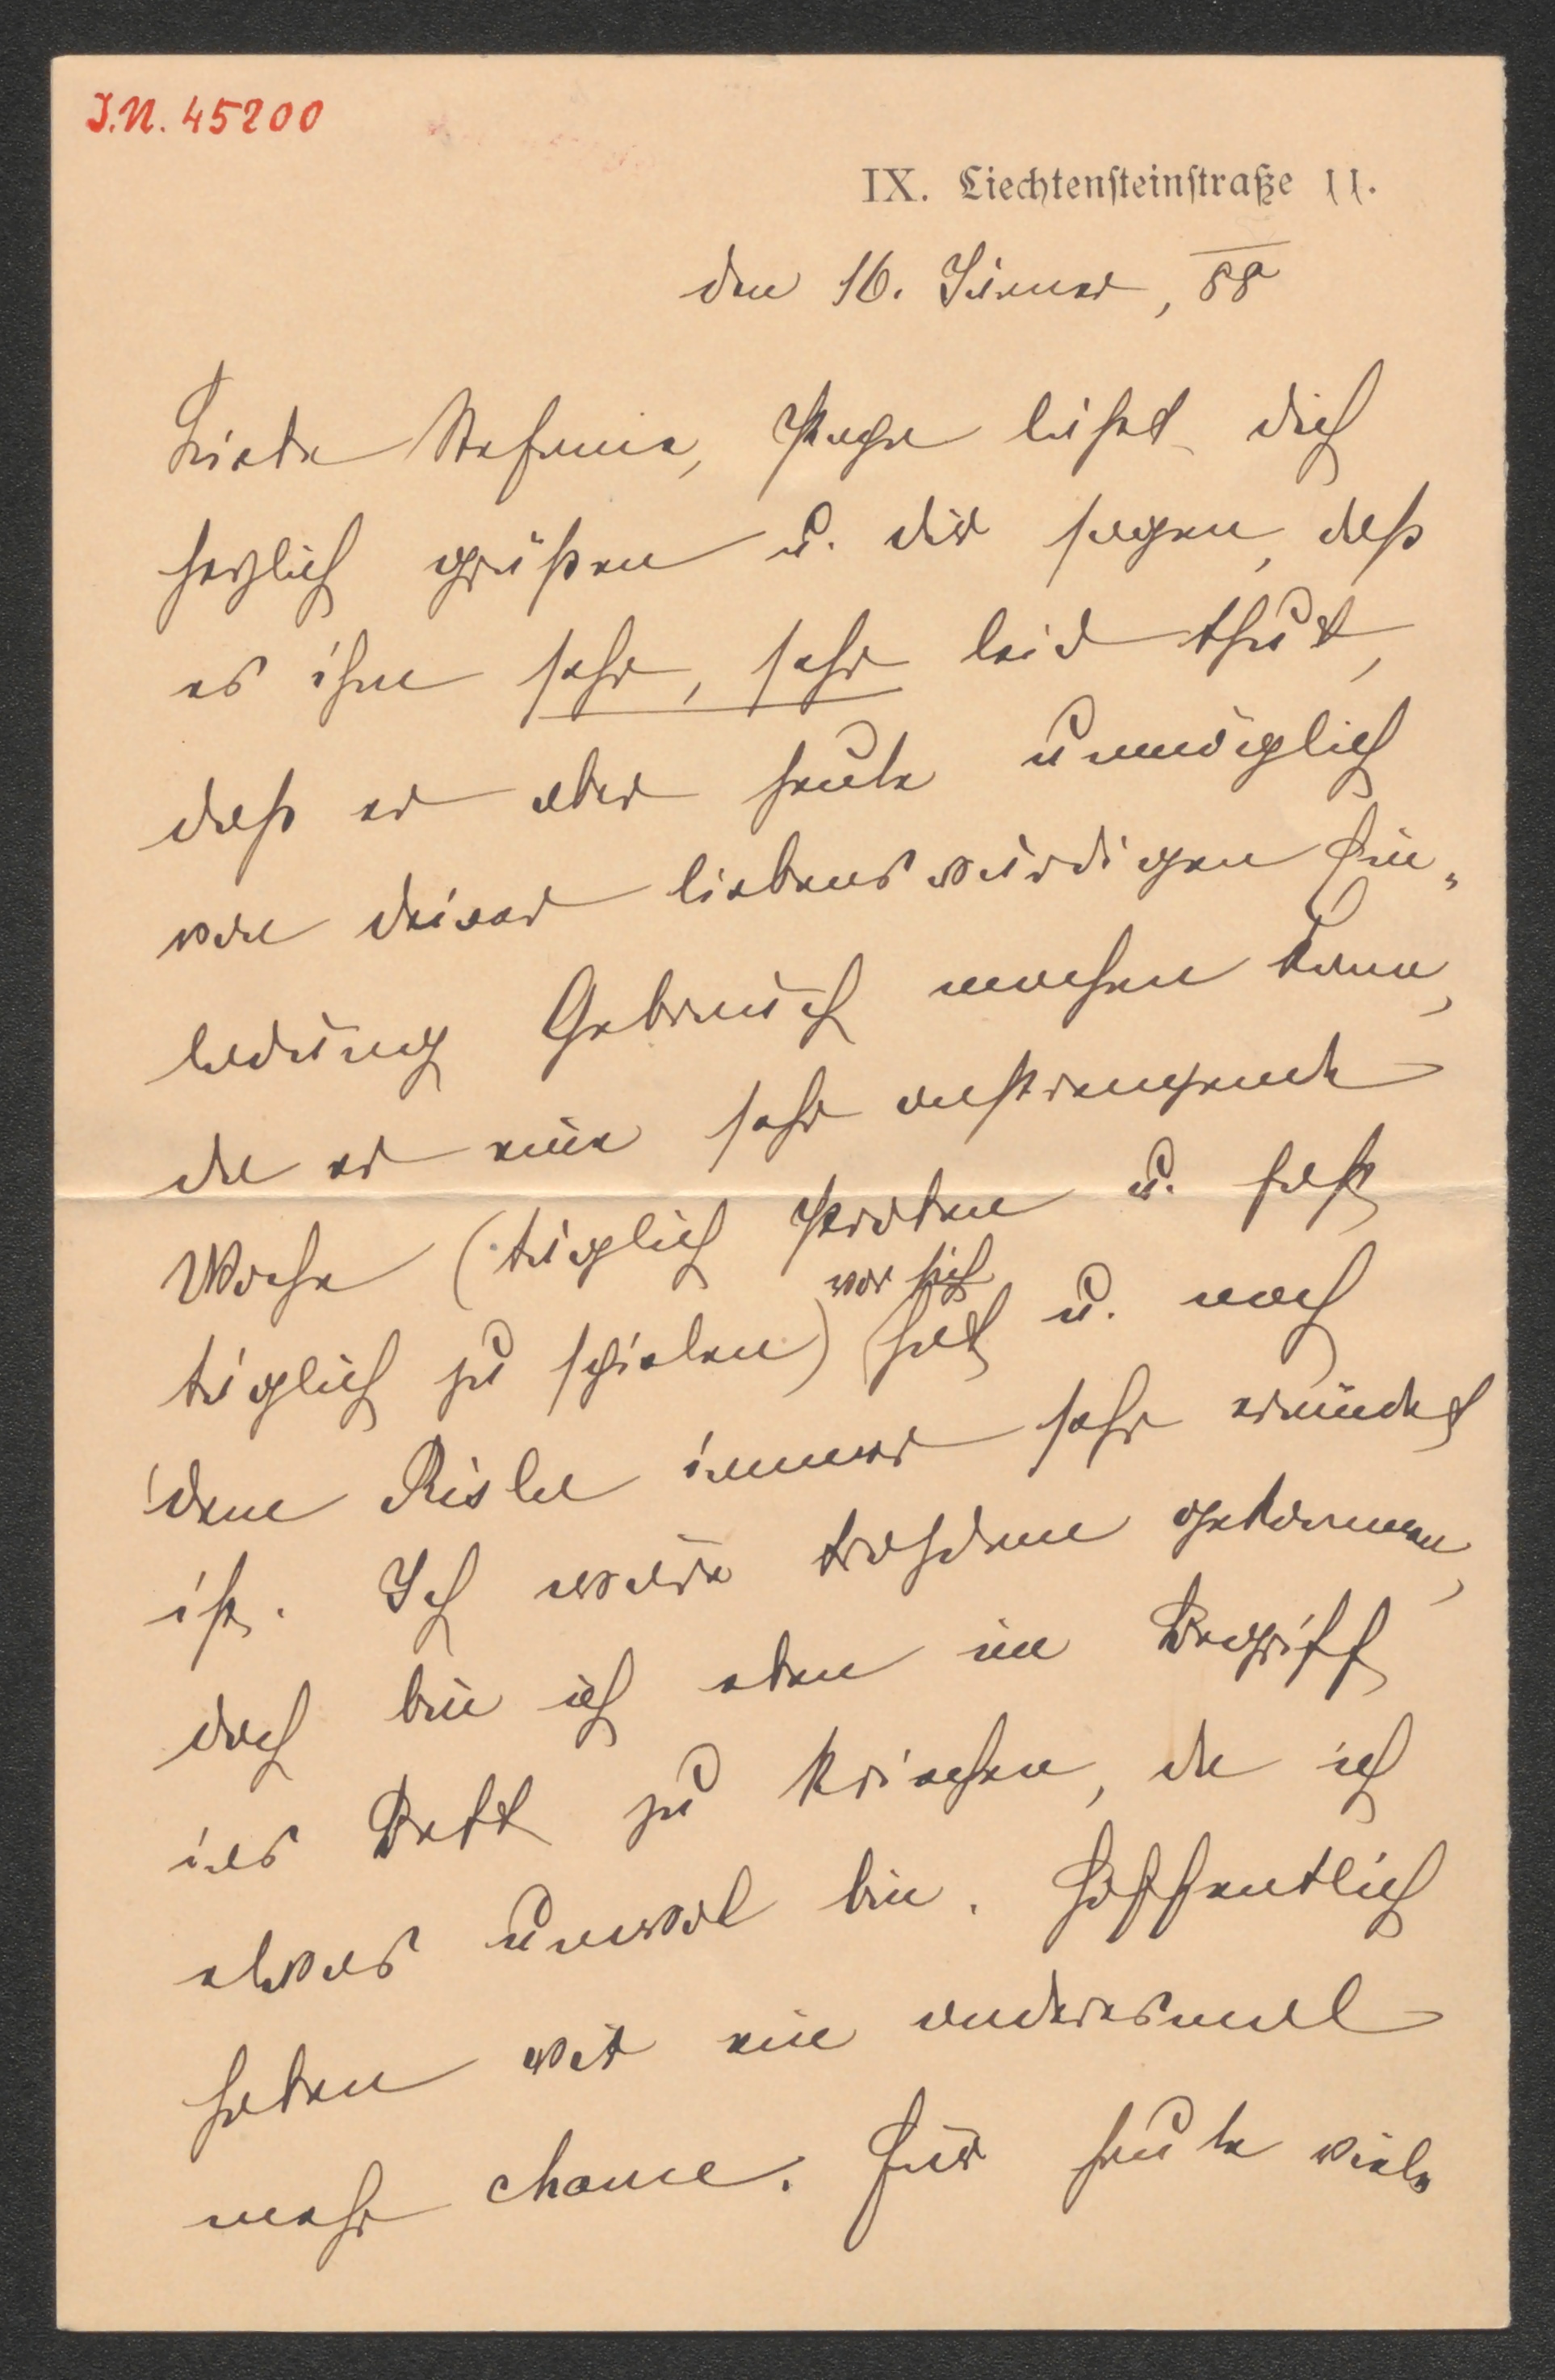 I.N. 45200
IX. Liechtensteinstraße 11.
den 16. Jänner, 88
Liebe Stefanie, Papa läßt dich
herzlich grüßen u. dir sagen, daß
es ihm sehr, sehr leid thut,
daß er aber heute unmöglich
von deiner liebenswürdigen Ein-
ladung Gebrauch machen kann,
da er eine sehr anstrengende
Woche (täglich Proben u. fast
täglich zu spielen) vor sich hat u. nach
dem Risler immer sehr ermüdet
ist. Ich wäre trotzdem gekommen,
doch bin ich eben im Begriff
ins Bett zu kriechen, da ich
etwas unwol bin. Hoffentlich
haben wir ein anderesmal
mehr chance. Für heute viele